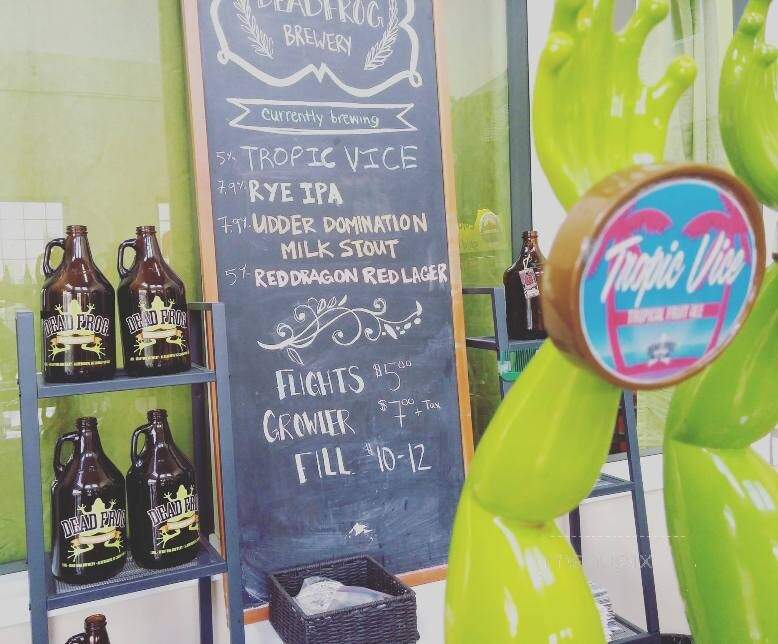 DEADFROG
BREWERY
currently brewing
5% TROPIC VICE
7.9% RYE IPA
7.9% UDDER DOMINATION
MILK STOUT
5% RED DRAGON RED LAGER
FLIGHTS $5.00
GROWLER $7.00 + Tax
FILL $10-12
Tropic Vice
TROPICAL FRUIT ALE
DEAD FROG
DEAD FROG
DEAD FROG
DEAD FROG